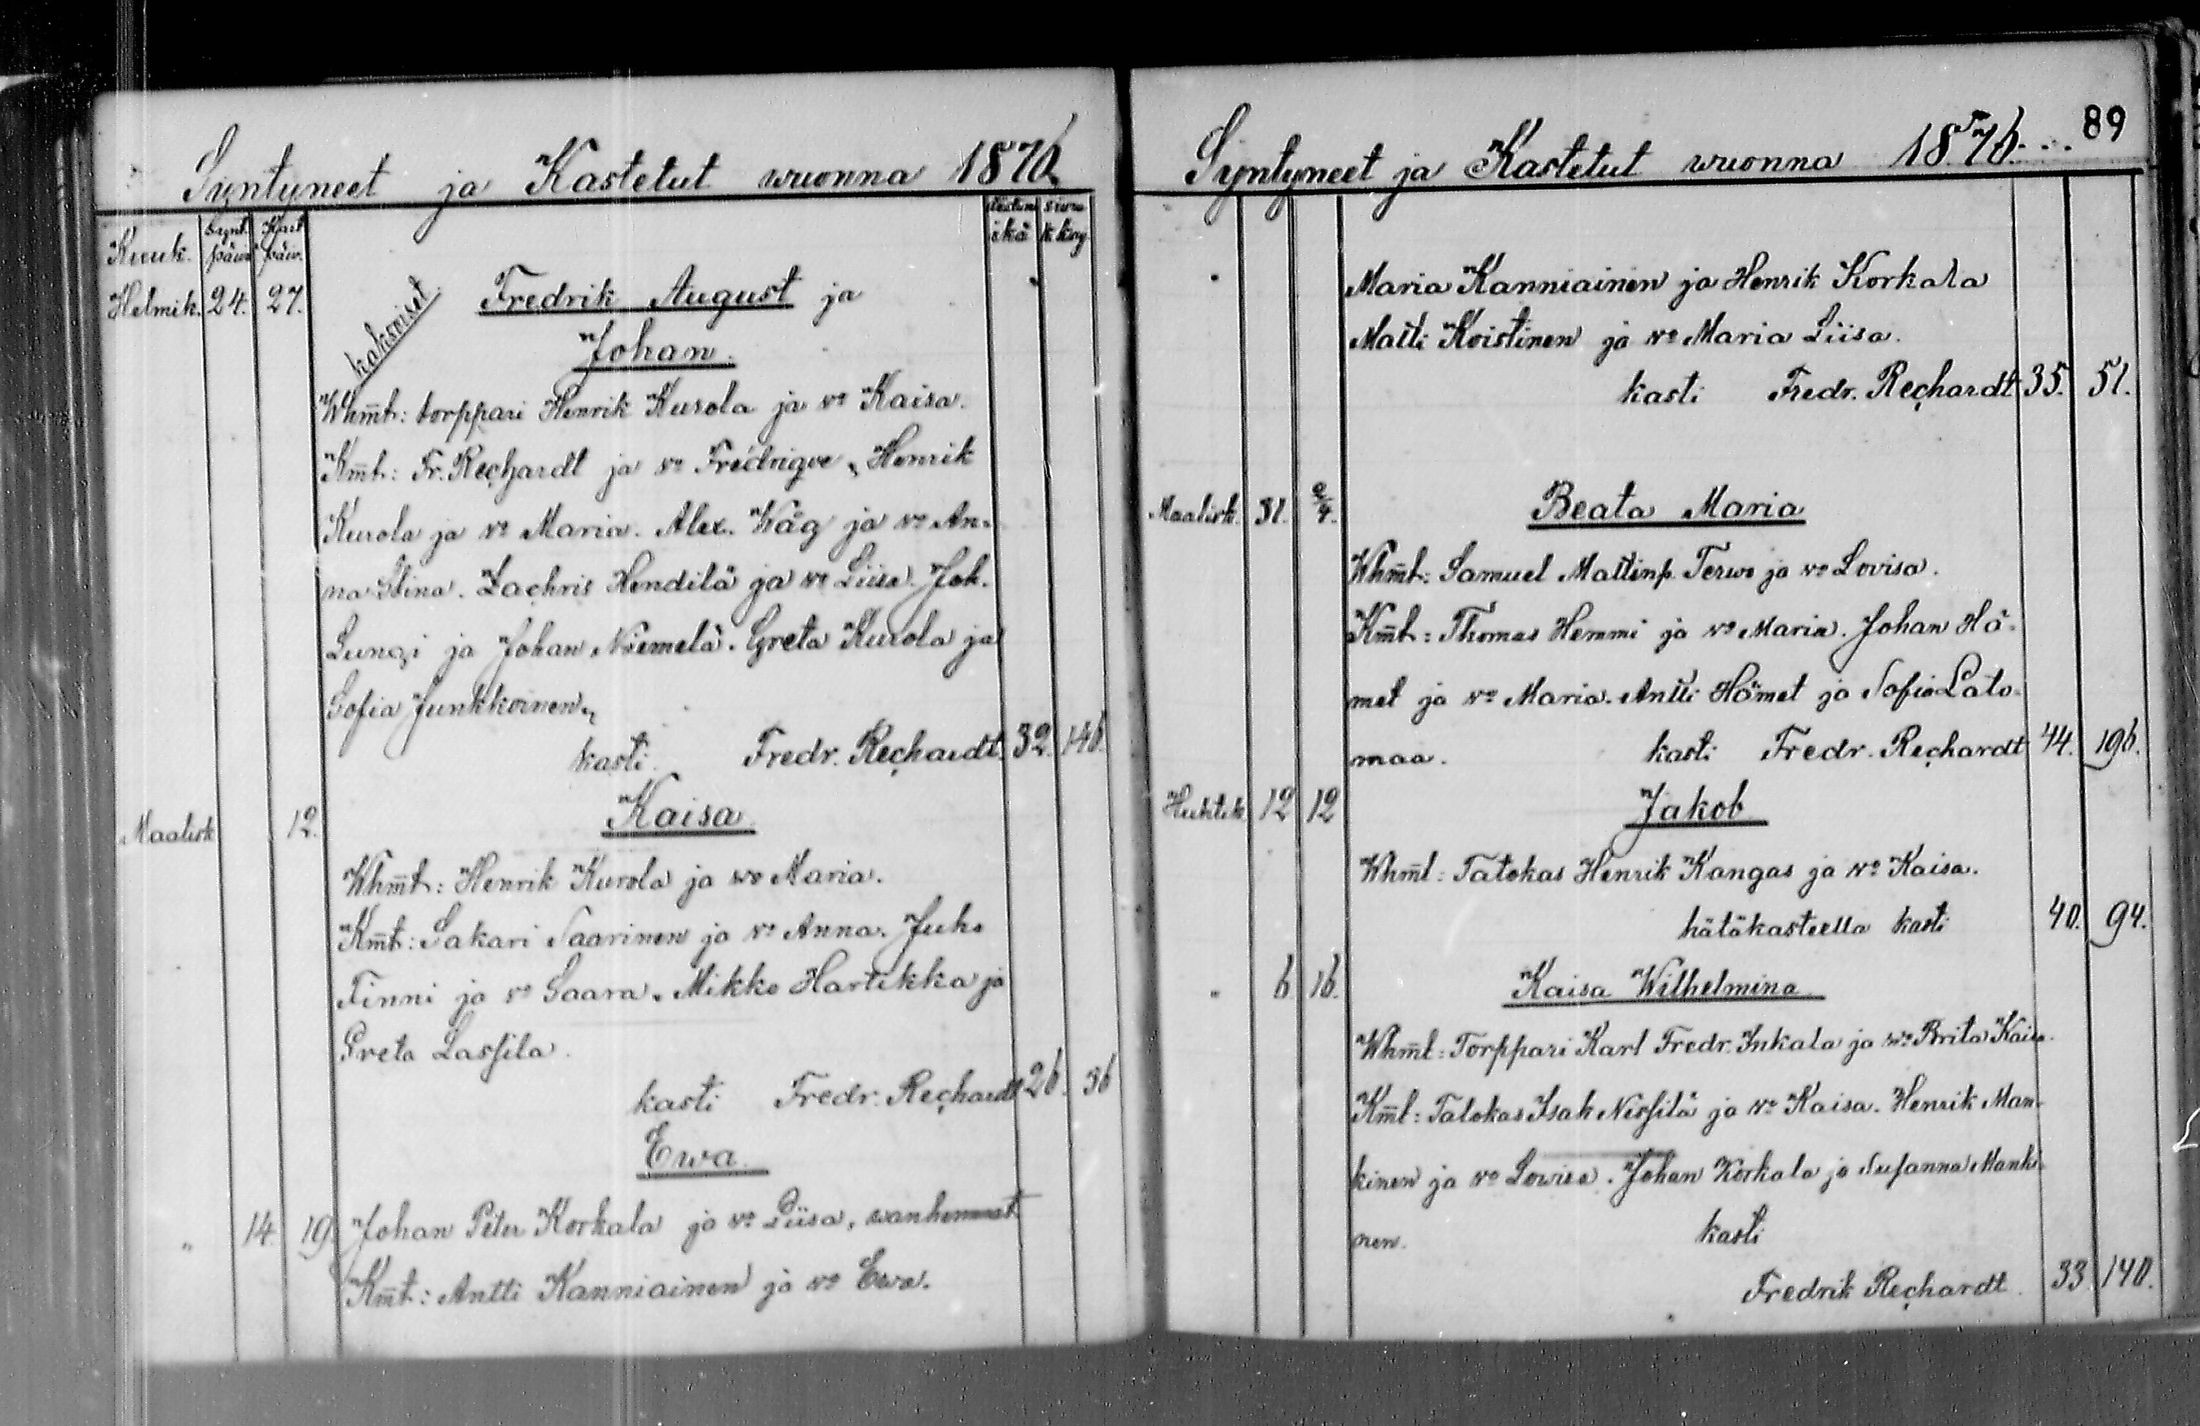 Syntyneet ja Kastetut wuonna 1876
Kuuk. Synt. päiw. Kast. päiw. ikä
Helmik. 24. 27. kaksoiset Fredrik August ja
Johan.
Whmt: torppari Henrik Kurola ja vo Kaisa.
Kmt: Fr. Rechardt ja vo Fredrique, Henrik
Kurola ja vo Maria. Alex. Wäg ja vo An-
na Stina. Zachris Hendilä ja vo Liisa. Joh.
Lungi ja Johan Niemelä. Greta Kurola ja
Sofia Junkkoinen,
kasti. Fredr. Rechardt. 32. 146.
Maalisk 12. Kaisa
Whmt: Henrik Kurola ja wo Maria.
Kmt: Sakari Saarinen ja vo Anna. Juho
Finni ja vo Saara. Mikko Hartikka ja
Greta Lassila.
kasti Fredr. Rechardt 26. 36
Ewa.
" 14. 19. Johan Peter Korkala ja vo Liisa, wanhemmat
Kmt: Antti Kanniainen ja vo Ewa.
Syntyneet ja Kastetut wuonna 1876. 89
Maria Kanniainen ja Henrik Korkala
Matti Koistinen ja vo Maria Liisa.
kasti Fredr. Rechardt 35. 51.
Maalisk. 31. 2/4. Beata Maria
Whmt: Samuel Mattinp. Terwo ja vo Lovisa.
Kmt: Thomas Hemmi ja vo Maria. Johan Hä-
met ja vo Maria. Antti Hämet ja Sofia Lato-
maa. kasti Fredr. Rechardt 44. 196.
Huhtik 12 12 Jakob
Whmt: Talokas Henrik Kangas ja vo Kaisa.
hätäkasteella kasti 40. 94.
" 6 16. Kaisa Wilhelmina
Whmt: Torppari Karl Fredr. Inkala ja wo Brita Kaisa.
Kmt: Talokas Isak Nissilä ja vo Kaisa. Henrik Man-
kinen ja vo Lowisa. Johan Korkala ja Susanna Manki-
nen. kasti
Fredrik Rechardt. 33. 140.